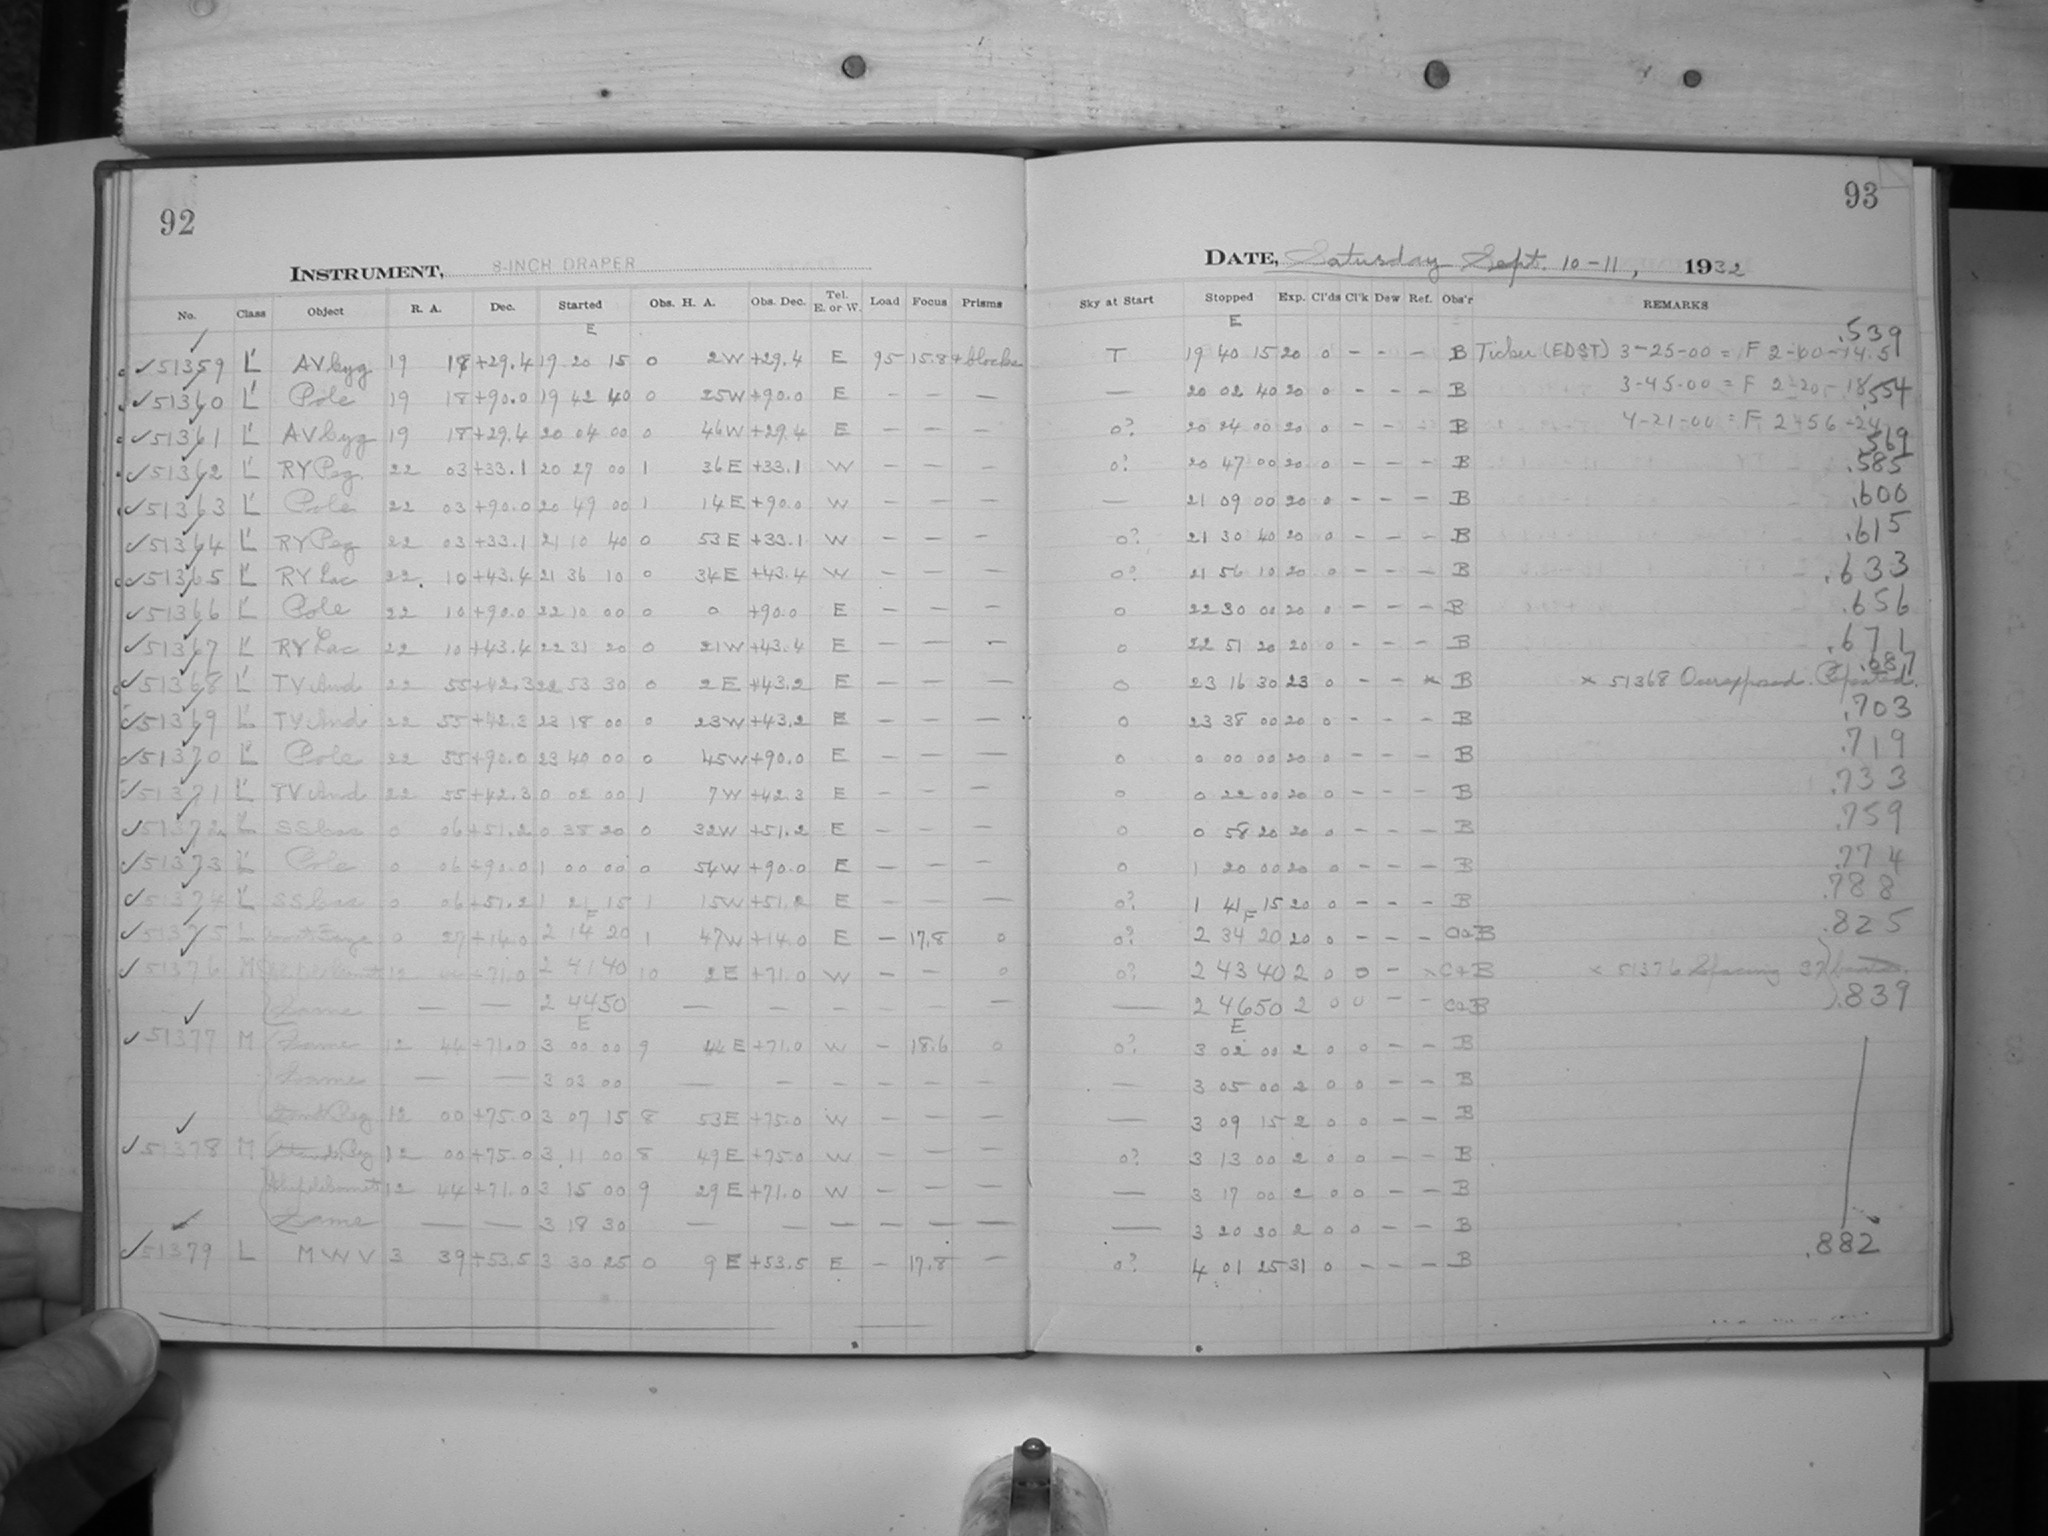 92
INSTRUMENT, 8-INCH DRAPER
No. Class Object R. A. Dec. Started Obs. H. A. Obs. Dec. Tel. E. or W. Load Focus Prisms
E
✓51359 L' AV Cyg 19 18 +29.4 19 20 15 0 2W +29.4 E 95 15.8 + blocks
✓51360 L' Pole 19 18 +90.0 19 42 40 0 25W +90.0 E — — —
✓51361 L' AV Cyg 19 18 +29.4 20 04 00 0 46W +29.4 E — — —
✓51362 L' RY Peg 22 03 +33.1 20 27 00 1 36E +33.1 W — — —
✓51363 L' Pole 22 03 +90.0 20 49 00 1 14E +90.0 W — — —
✓51364 L' RY Peg 22 03 +33.1 21 10 40 0 53E +33.1 W — — —
✓51365 L' RY Lac 22 10 +43.4 21 36 10 0 34E +43.4 W — — —
✓51366 L' Pole 22 10 +90.0 22 10 00 0 0 +90.0 E — — —
✓51367 L' RY Lac 22 10 +43.4 22 31 20 0 21W +43.4 E — — —
✓51368 L' TV And 22 55 +42.3 22 53 30 0 2E +43.2 E — — —
✓51369 L' TV And 22 55 +42.3 23 18 00 0 23W +43.2 E — — —
✓51370 L' Pole 22 55 +90.0 23 40 00 0 45W +90.0 E — — —
✓51371 L' TV And 22 55 +42.3 0 02 00 1 7W +42.3 E — — —
✓51372 L' SS Cas 0 06 +51.2 0 38 20 0 32W +51.2 E — — —
✓51373 L' Pole 0 06 +90.0 1 00 00 0 54W +90.0 E — — —
✓51374 L' SS Cas 0 06 +51.2 1 21 15 1 15W +51.2 E — — —
F
✓51375 L 0 27 +14.0 2 14 20 1 47W +14.0 E — 17.8 0
✓51376 M 12 44 +71.0 2 41 40 10 2E +71.0 W — — 0
Same — — 2 44 50 — — — — — —
E
✓51377 M Same 12 44 +71.0 3 00 00 9 44E +71.0 W — 18.6 0
Same — — 3 03 00 — — — — — —
12 00 +75.0 3 07 15 8 53E +75.0 W — — —
✓51378 M 12 00 +75.0 3 11 00 8 49E +75.0 W — — —
12 44 +71.0 3 15 00 9 29E +71.0 W — — —
Same — — 3 18 30 — — — — — —
✓51379 L M W V 3 39 +53.5 3 30 25 0 9E +53.5 E — 17.8 —
93
DATE, Saturday Sept. 10-11, 1932
Sky at Start Stopped Exp. Cl'ds Cl'k Dew Ref. Obs'r REMARKS
E .539
T 19 40 15 20 0 - - - B Ticker (EDST) 3-25-00 = F 2-00-14.5
— 20 02 40 20 0 - - - B 3-45-00 = F 2-20-18 .554
0? 20 24 00 20 0 - - - B 4-21-00 = F 2-56-24 .569
0? 20 47 00 20 0 - - - B .585
— 21 09 00 20 0 - - - B .600
0? 21 30 40 20 0 - - - B .615
0? 21 56 10 20 0 - - - B .633
0 22 30 00 20 0 - - - B .656
0 22 51 20 20 0 - - - B .671
0 23 16 30 23 0 - - x B x 51368 Overexposed. Repeated. .687
0 23 38 00 20 0 - - - B .703
0 0 00 00 20 0 - - - B .719
0 0 22 00 20 0 - - - B .733
0 0 58 20 20 0 - - - B .759
0 1 20 00 20 0 - - - B .774
0? 1 41 15 20 0 - - - B .788
F
0? 2 34 20 20 0 - - - C&B .825
0? 2 43 40 2 0 0 - x C&B x 51376 Spacing 37
— 2 46 50 2 0 0 - - C&B .839
E
0? 3 02 00 2 0 0 - - B
— 3 05 00 2 0 0 - - B
— 3 09 15 2 0 0 - - B
0? 3 13 00 2 0 0 - - B
— 3 17 00 2 0 0 - - B
— 3 20 30 2 0 0 - - B
0? 4 01 25 31 0 - - - B .882